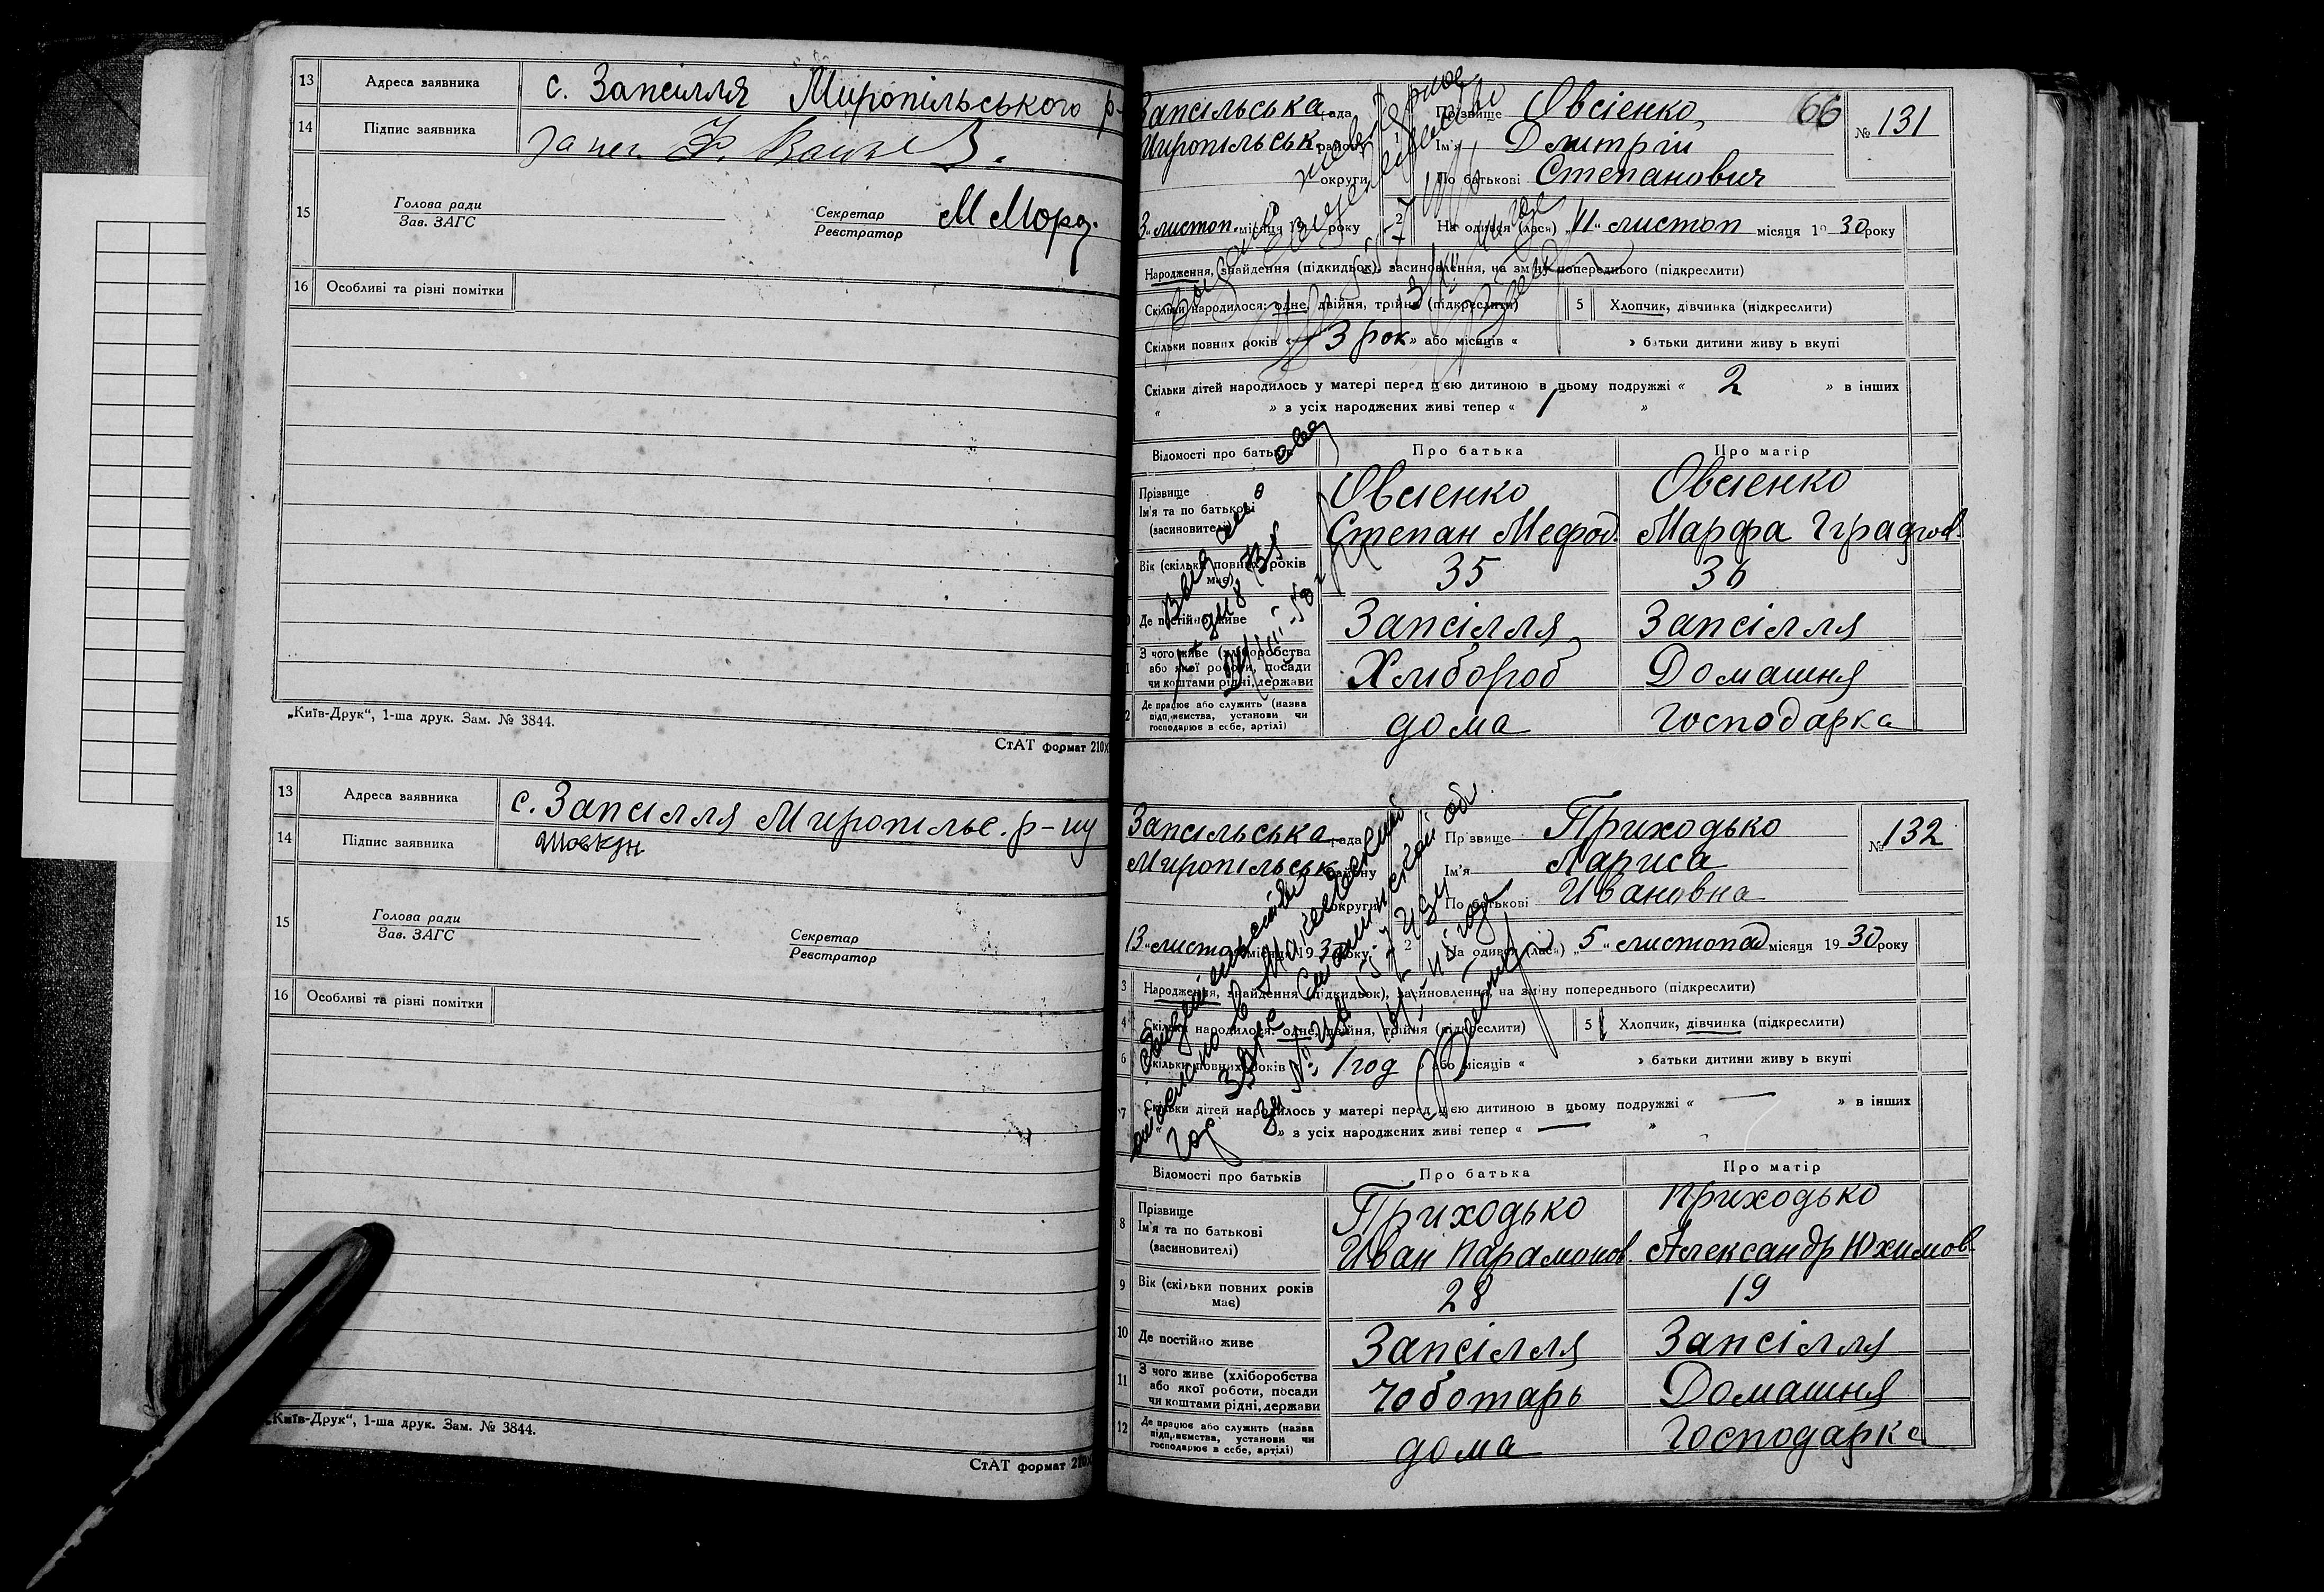 13 Адреса заявника с. Запсилля Миропільського р-
14 Підпис заявника за нег.
15 Голова ради
Зав. ЗАГС
Секретар М Морд.
Реєстратор
16 Особливі та різні помітки
„Київ-Друк“, 1-ша друк. Зам. № 3844.
СтАТ формат 210Х
13 Адреса заявника с. Запсілля Миропільс. р-ну
14 Підпис заявника
15 Голова ради
Зав. ЗАГС
Секретар
Реєстратор
16 Особливі та різні помітки
„Київ-Друк“, 1-ша друк. Зам. № 3844.
СтАТ формат 210Х
66
Запсільська рада Прізвище Овсіенко № 131
Миропільськ. району Ім'я Дмитрій
округи По батькові Степанович
3 „листоп. місяця 19 року 2 На одився (лась) „11“ листоп місяця 19 30 року
Народження, знайдення (підкидьок), засиновлення, на зміну попереднього (підкреслити)
Скільки народилося: одне, двійня, трійня (підкреслити) 5 Хлопчик, дівчинка (підкреслити)
Скільки повних років « 3 рок » або місяців « » батьки дитини живу ь вкупі
Скільки дітей народилось у матері перед цією дитиною в цьому подружжі « 2 » в інших
« » з усіх народжених живі тепер « 1 »
Відомості про батьків Про батька Про матір
Прізвище Овсіенко Овсіенко
Ім'я та по батькові Степан Мефод. Марфа
(засиновителі)
Вік (скільки повних років має) 35 36
Де постійно живе Запсілля Запсілля
З чого живе (хліборобства
або якої роботи, посади Хлибороб Домашня
чи коштами рідні, держави
Де працює або служить (назва
підприємства, установи чи дома господарка
господарює в себе, артілі)
Запсільська рада Прізвище Приходько № 132
Миропільськ. району Ім'я Лариса
округи По батькові Ивановна
13 „листоп місяця 193 року 2 На одився (лась) „5“ листопад місяця 19 30 року
3 Народження, знайдення (підкидьок), засиновлення, на зміну попереднього (підкреслити)
4 Скільки народилося: одне, двійня, трійня (підкреслити) 5 Хлопчик, дівчинка (підкреслити)
6 Скільки повних років « 1 год » або місяців « » батьки дитини живу ь вкупі
7 Скільки дітей народилось у матері перед цією дитиною в цьому подружжі « — » в інших
« » з усіх народжених живі тепер « — »
Відомості про батьків Про батька Про матір
8 Прізвище Приходько Приходько
Ім'я та по батькові Иван Парамонов. Александр Юхимов.
(засиновителі)
9 Вік (скільки повних років має) 28 19
10 Де постійно живе Запсілля Запсілля
11 З чого живе (хліборобства
або якої роботи, посади чоботарь Домашня
чи коштами рідні, держави
12 Де працює або служить (назва
підприємства, установи чи дома господарка
господарює в себе, артілі)